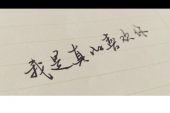 我是真心喜欢你